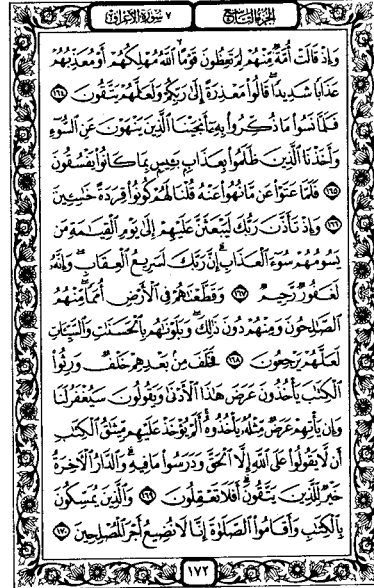 الجزء التاسع
٧ سورة الأعراف
وَإِذْ قَالَتْ أُمَّةٌ مِّنْهُمْ لِمَ تَعِظُونَ قَوْمًا ٱللَّهُ مُهْلِكُهُمْ أَوْ مُعَذِّبُهُمْ
عَذَابًا شَدِيدًا قَالُوا۟ مَعْذِرَةً إِلَىٰ رَبِّكُمْ وَلَعَلَّهُمْ يَتَّقُونَ ١٦٤
فَلَمَّا نَسُوا۟ مَا ذُكِّرُوا۟ بِهِۦٓ أَنجَيْنَا ٱلَّذِينَ يَنْهَوْنَ عَنِ ٱلسُّوٓءِ
وَأَخَذْنَا ٱلَّذِينَ ظَلَمُوا۟ بِعَذَابٍۭ بَـِٔيسٍۭ بِمَا كَانُوا۟ يَفْسُقُونَ
١٦٥ فَلَمَّا عَتَوْا۟ عَن مَّا نُهُوا۟ عَنْهُ قُلْنَا لَهُمْ كُونُوا۟ قِرَدَةً خَـٰسِـِٔينَ
١٦٦ وَإِذْ تَأَذَّنَ رَبُّكَ لَيَبْعَثَنَّ عَلَيْهِمْ إِلَىٰ يَوْمِ ٱلْقِيَـٰمَةِ مَن
يَسُومُهُمْ سُوٓءَ ٱلْعَذَابِ إِنَّ رَبَّكَ لَسَرِيعُ ٱلْعِقَابِ وَإِنَّهُۥ
لَغَفُورٌ رَّحِيمٌ ١٦٧ وَقَطَّعْنَـٰهُمْ فِى ٱلْأَرْضِ أُمَمًا مِّنْهُمُ
ٱلصَّـٰلِحُونَ وَمِنْهُمْ دُونَ ذَٰلِكَ وَبَلَوْنَـٰهُم بِٱلْحَسَنَـٰتِ وَٱلسَّيِّـَٔاتِ
لَعَلَّهُمْ يَرْجِعُونَ ١٦٨ فَخَلَفَ مِنۢ بَعْدِهِمْ خَلْفٌ وَرِثُوا۟
ٱلْكِتَـٰبَ يَأْخُذُونَ عَرَضَ هَـٰذَا ٱلْأَدْنَىٰ وَيَقُولُونَ سَيُغْفَرُ لَنَا
وَإِن يَأْتِهِمْ عَرَضٌ مِّثْلُهُۥ يَأْخُذُوهُ أَلَمْ يُؤْخَذْ عَلَيْهِم مِّيثَـٰقُ ٱلْكِتَـٰبِ
أَن لَّا يَقُولُوا۟ عَلَى ٱللَّهِ إِلَّا ٱلْحَقَّ وَدَرَسُوا۟ مَا فِيهِ وَٱلدَّارُ ٱلْـَٔاخِرَةُ
خَيْرٌ لِّلَّذِينَ يَتَّقُونَ أَفَلَا تَعْقِلُونَ ١٦٩ وَٱلَّذِينَ يُمَسِّكُونَ
بِٱلْكِتَـٰبِ وَأَقَامُوا۟ ٱلصَّلَوٰةَ إِنَّا لَا نُضِيعُ أَجْرَ ٱلْمُصْلِحِينَ ١٧٠
١٧٢